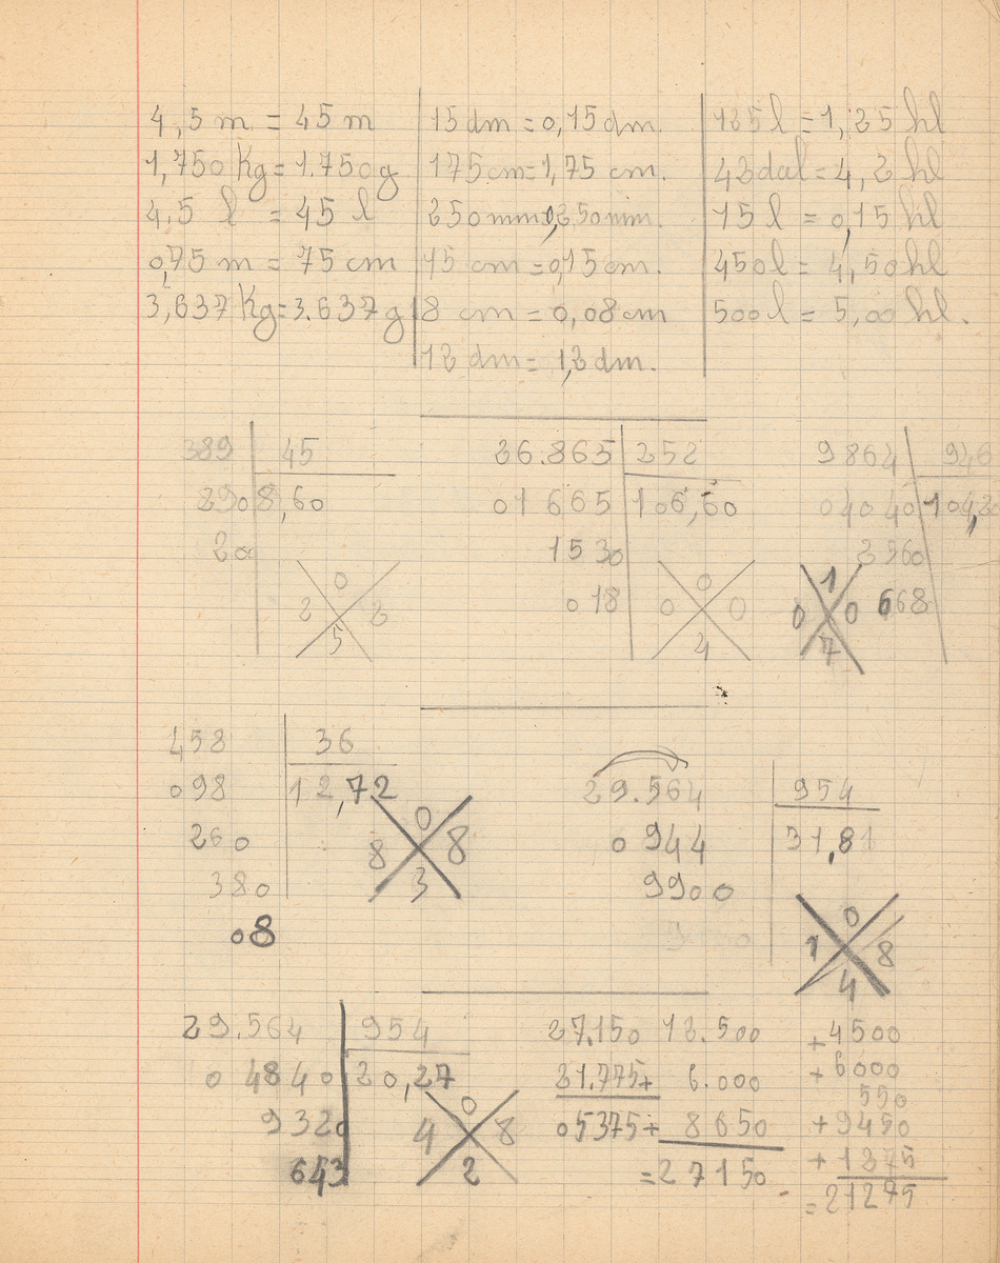 4,5 m = 45 m
1,750 Kg = 1.750 g
4,5 l = 45 l
0,75 m = 75 cm
3,637 Kg = 3.637 g
15 dm = 0,15 dm.
175 cm = 1,75 cm.
250 mm = 0,250 mm.
15 cm = 0,15 cm.
8 cm = 0,08 cm
12 dm = 1,2 dm.
125 l = 1,25 hl
42 dal = 4,2 hl
15 l = 0,15 hl
450 l = 4,50 hl
500 l = 5,00 hl.
389 45
290 8,60
200
0
2 2
5
26.865 252
01665 106,60
1530
018
0
0 0
4
9864 946
04040 104,2
2560
668
1
0 0
7
458 36
098 12,72
260
380
08
0
8 8
3
29.564 954
0944 31,81
9900
0
1 8
4
29.564 954
04840 20,27
9320
643
0
4 8
2
27.150
21.775+
05375+
12.500
6.000
8650
=27150
+4500
+6000
550
+9450
+1275
=21275